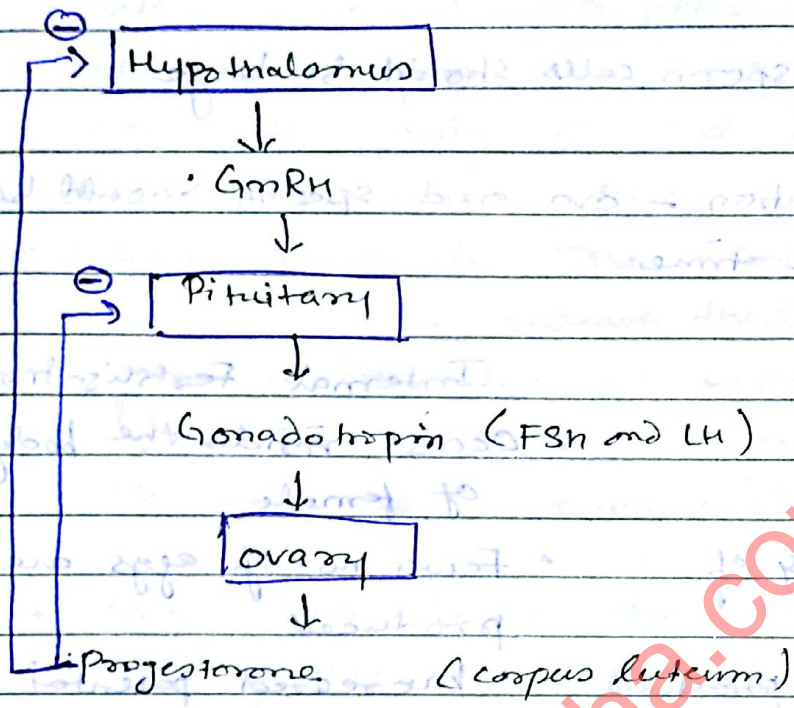 ⊖
Hypothalamus
• GnRH
⊖
Pituitary
Gonadotropin (FSH and LH)
ovary
Progestorone (corpus luteum)